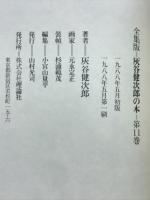 全集版—灰谷健次郎の本—第11巻
一九八八年五月初版
一九八八年五月第一刷
著者—灰谷健次郎
画家—元永定正
装幀—杉浦範茂
編集—小宮山量平
発行—山村光司
発行所—株式会社理論社
東京都新宿区若松町一五-六